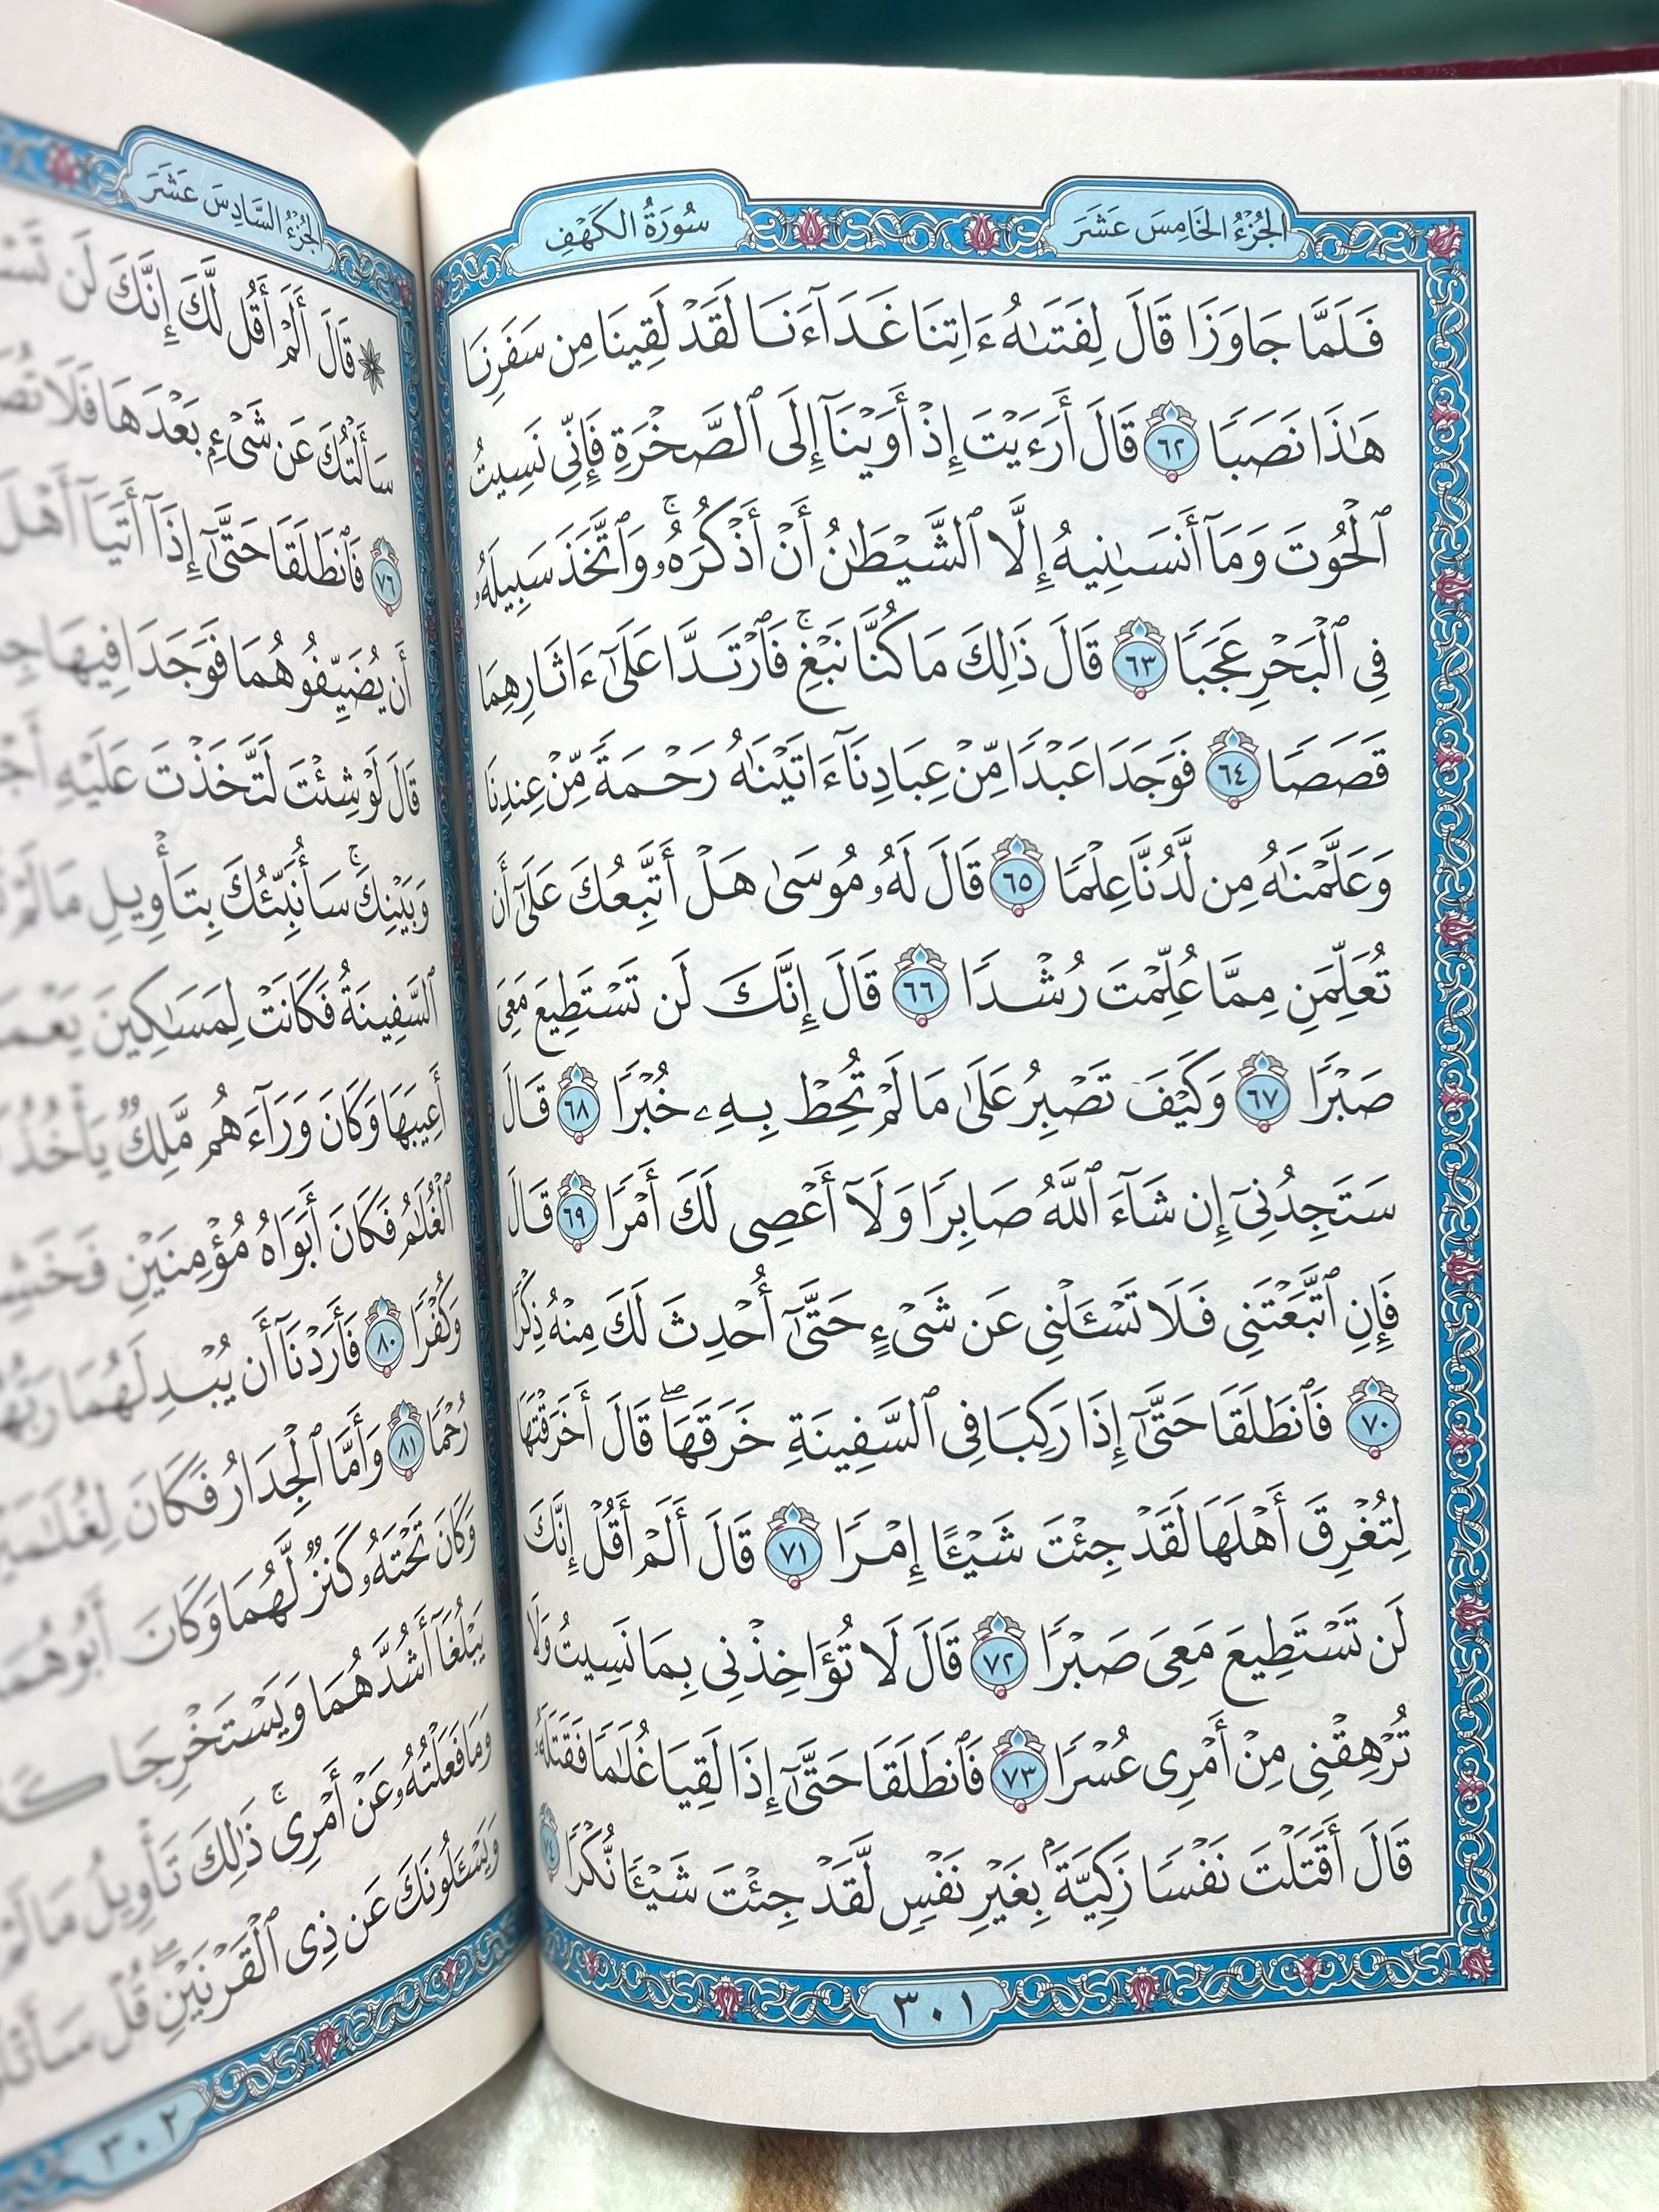 الجزء الخامس عشر
سورة الكهف
فَلَمَّا جَاوَزَا قَالَ لِفَتَىٰهُ ءَاتِنَا غَدَآءَنَا لَقَدۡ لَقِينَا مِن سَفَرِنَا
هَٰذَا نَصَبٗا ٦٢ قَالَ أَرَءَيۡتَ إِذۡ أَوَيۡنَآ إِلَى ٱلصَّخۡرَةِ فَإِنِّي نَسِيتُ
ٱلۡحُوتَ وَمَآ أَنسَىٰنِيهُ إِلَّا ٱلشَّيۡطَٰنُ أَنۡ أَذۡكُرَهُۥۚ وَٱتَّخَذَ سَبِيلَهُۥ
فِي ٱلۡبَحۡرِ عَجَبٗا ٦٣ قَالَ ذَٰلِكَ مَا كُنَّا نَبۡغِۚ فَٱرۡتَدَّا عَلَىٰٓ ءَاثَارِهِمَا
قَصَصٗا ٦٤ فَوَجَدَا عَبۡدٗا مِّنۡ عِبَادِنَآ ءَاتَيۡنَٰهُ رَحۡمَةٗ مِّنۡ عِندِنَا
وَعَلَّمۡنَٰهُ مِن لَّدُنَّا عِلۡمٗا ٦٥ قَالَ لَهُۥ مُوسَىٰ هَلۡ أَتَّبِعُكَ عَلَىٰٓ أَن
تُعَلِّمَنِ مِمَّا عُلِّمۡتَ رُشۡدٗا ٦٦ قَالَ إِنَّكَ لَن تَسۡتَطِيعَ مَعِيَ
صَبۡرٗا ٦٧ وَكَيۡفَ تَصۡبِرُ عَلَىٰ مَا لَمۡ تُحِطۡ بِهِۦ خُبۡرٗا ٦٨ قَالَ
سَتَجِدُنِيٓ إِن شَآءَ ٱللَّهُ صَابِرٗا وَلَآ أَعۡصِي لَكَ أَمۡرٗا ٦٩ قَالَ
فَإِنِ ٱتَّبَعۡتَنِي فَلَا تَسۡـَٔلۡنِي عَن شَيۡءٍ حَتَّىٰٓ أُحۡدِثَ لَكَ مِنۡهُ ذِكۡرٗا
٧٠ فَٱنطَلَقَا حَتَّىٰٓ إِذَا رَكِبَا فِي ٱلسَّفِينَةِ خَرَقَهَاۖ قَالَ أَخَرَقۡتَهَا
لِتُغۡرِقَ أَهۡلَهَا لَقَدۡ جِئۡتَ شَيۡـًٔا إِمۡرٗا ٧١ قَالَ أَلَمۡ أَقُلۡ إِنَّكَ
لَن تَسۡتَطِيعَ مَعِيَ صَبۡرٗا ٧٢ قَالَ لَا تُؤَاخِذۡنِي بِمَا نَسِيتُ وَلَا
تُرۡهِقۡنِي مِنۡ أَمۡرِي عُسۡرٗا ٧٣ فَٱنطَلَقَا حَتَّىٰٓ إِذَا لَقِيَا غُلَٰمٗا فَقَتَلَهُۥ
قَالَ أَقَتَلۡتَ نَفۡسٗا زَكِيَّةَۢ بِغَيۡرِ نَفۡسٖ لَّقَدۡ جِئۡتَ شَيۡـٔٗا نُّكۡرٗا ٧٤
٣٠١
الجزء السادس عشر
۞ قَالَ أَلَمۡ أَقُل لَّكَ إِنَّكَ لَن
سَأَلۡتُكَ عَن شَيۡءِۭ بَعۡدَهَا فَلَا
٧٦ فَٱنطَلَقَا حَتَّىٰٓ إِذَآ أَتَيَآ أَهۡلَ
أَن يُضَيِّفُوهُمَا فَوَجَدَا فِيهَا
قَالَ لَوۡ شِئۡتَ لَتَّخَذۡتَ عَلَيۡهِ
وَبَيۡنِكَۚ سَأُنَبِّئُكَ بِتَأۡوِيلِ مَا لَمۡ
ٱلسَّفِينَةُ فَكَانَتۡ لِمَسَٰكِينَ
أَعِيبَهَا وَكَانَ وَرَآءَهُم مَّلِكٞ يَأۡخُذُ
ٱلۡغُلَٰمُ فَكَانَ أَبَوَاهُ مُؤۡمِنَيۡنِ
وَكُفۡرٗا ٨٠ فَأَرَدۡنَآ أَن يُبۡدِلَهُمَا
رُحۡمٗا ٨١ وَأَمَّا ٱلۡجِدَارُ فَكَانَ
وَكَانَ تَحۡتَهُۥ كَنزٞ لَّهُمَا وَكَانَ أَبُوهُمَا
يَبۡلُغَآ أَشُدَّهُمَا وَيَسۡتَخۡرِجَا
وَمَا فَعَلۡتُهُۥ عَنۡ أَمۡرِيۚ ذَٰلِكَ تَأۡوِيلُ مَا لَمۡ
وَيَسۡـَٔلُونَكَ عَن ذِي ٱلۡقَرۡنَيۡنِۖ قُلۡ
٣٠٢